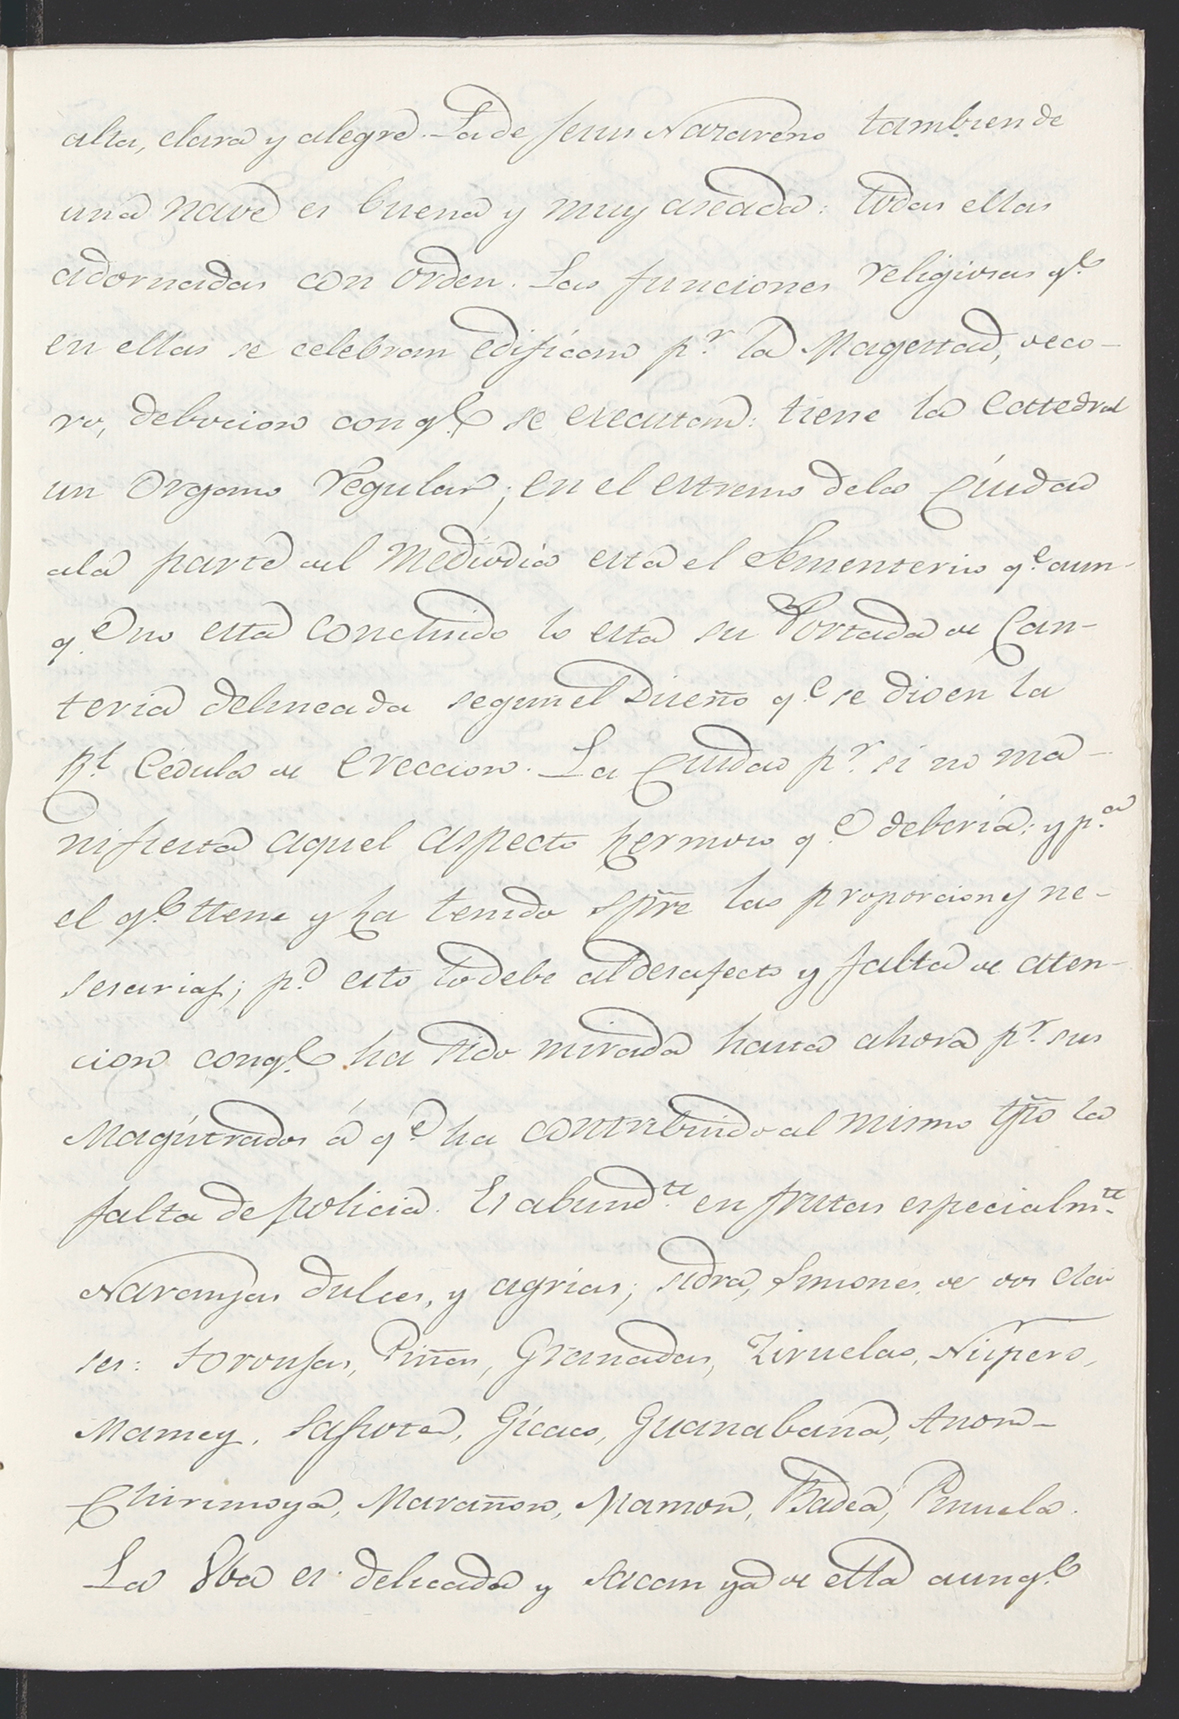 alta, clara y alegre. La de Jesus Nazareno tambien de
una nave es buena y muy aseada: todas ellas
adornadas con orden. Las funciones religiosas q.e
en ellas se celebran edifican p.r la Magestad, deco-
ro, debocion con q.e se executan: tiene la Catedral
un Organo regular; en el estremo dela Ciudad
ala parte del Mediodia esta el Sementerio q.e aun-
q.e no esta concluido lo esta su Portada de Can-
teria delineada segun el Diseño q.e se dio en la
R.l Cedula de ereccion. La Ciudad p.r si no ma-
nifiesta aquel aspecto hermoso q.e deberia: y p.a
el q.e tiene y ha tenido spre las proporciones ne-
sesarias; p.o esto lo debe al desafecto y falta de aten-
cion con q.e ha sido mirada hasta ahora p.r sus
Magistrados á q.e ha contribuido al mismo tpo la
falta de policia. Es abund.te en frutas especialm.te
Naranjas dulces, y agrias; sidra, limones, de dos cla-
ses: toronjas, Piñas, Granadas, Ziruelas, Nispero,
Mamey, Sapote, Gicaco, Guanabana, Anon-
Chirimoya, Marañon, Mamon, Badea, Pinuela.
La Uba es delicada y sacan ya de ella aunq.e